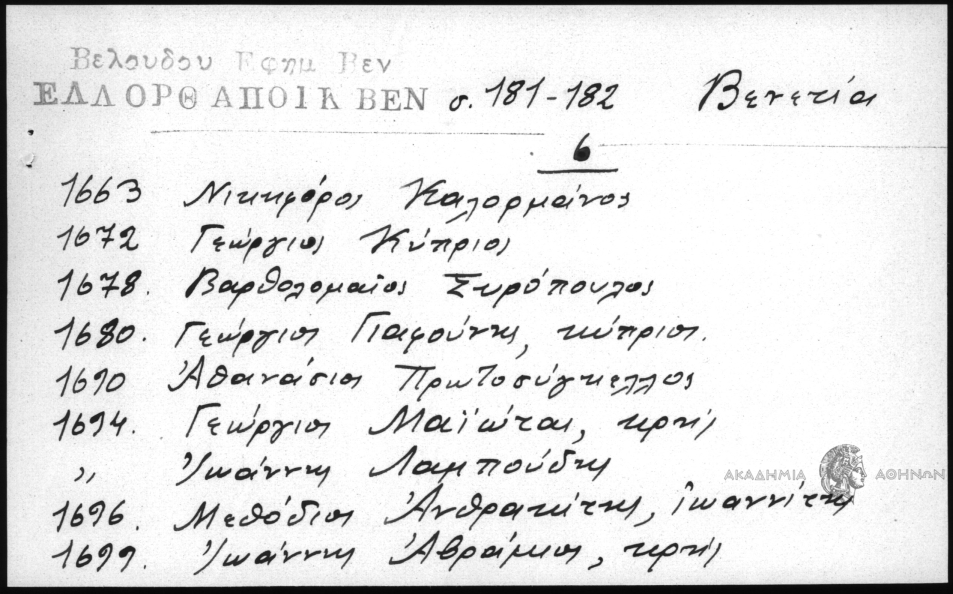 Βελουδου Εφημ Βεν
ΕΛΛ ΟΡΘ ΑΠΟΙΚ ΒΕΝ σ. 181-182 Βενετία
6
1663 Νικηφόρος Καλορμάνος
1672 Γεώργιος Κύπριος
1678. Βαρθολομαῖος Συρόπουλος
1680. Γεώργιος Γιαφούνης, κύπριος.
1690 Ἀθανάσιος Πρωτοσύγκελλος
1694. Γεώργιος Μαϊώτας, κρής
,, Ἰωάννης Λαμπούδης
1696. Μεθόδιος Ἀνθρακίτης, ἰωαννίτης
1699. Ἰωάννης Ἀβράμιος, κρής
ΑΚΑΔΗΜΙΑ ΑΘΗΝΩΝ